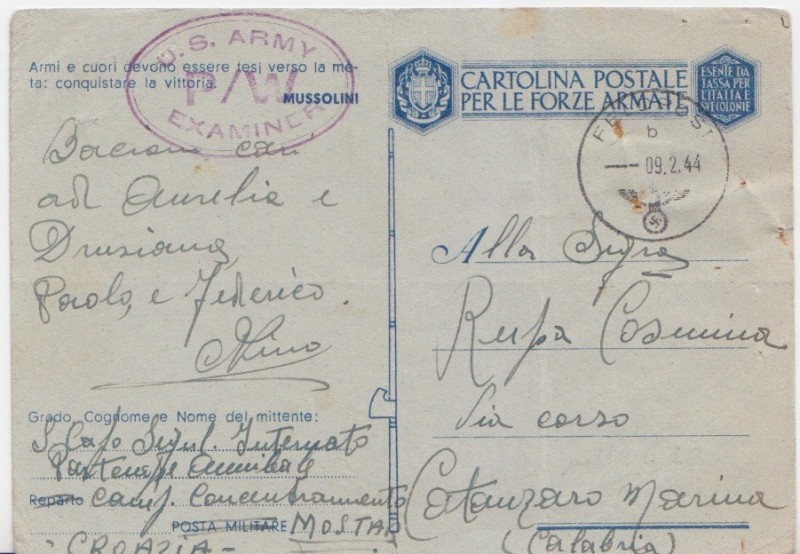 Armi e cuori devono essere tesi verso la me-
ta: conquistare la vittoria.
MUSSOLINI
U.S. ARMY
P/W
EXAMINER
CARTOLINA POSTALE
PER LE FORZE ARMATE
ESENTE DA
TASSA PER
L'ITALIA E
SVE COLONIE
FELDPOST
b
09.2.44
Bacioni cari
ad Aurelia e
Drusiana,
Paolo, e Federico.
Nino
Grado, Cognome e Nome del mittente:
S. Capo Segnl. Internato
Partenope Annibale
Reparto Camp. Concentramento
POSTA MILITARE MOSTAR
- CROAZIA -
Alla Sigra
Rupa Cosmina
Via corso
Catanzaro Marina
(Calabria)